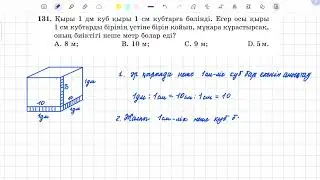 131. Қыры 1 дм куб қыры 1 см кубтарға бөлінді. Егер осы қыры
1 см кубтарды бірінің үстіне бірін қойып, мұнара құрастырсақ,
оның биіктігі неше метр болар еді?
A. 8 м; B. 10 м; C. 9 м; D. 5 м.
1. Әр қырында неше 1см-лік куб бар екенін анықтау
1дм : 1см = 10см : 1см = 10
2. Жалпы 1см-лік неше куб б
1дм
10
10
1дм
1дм